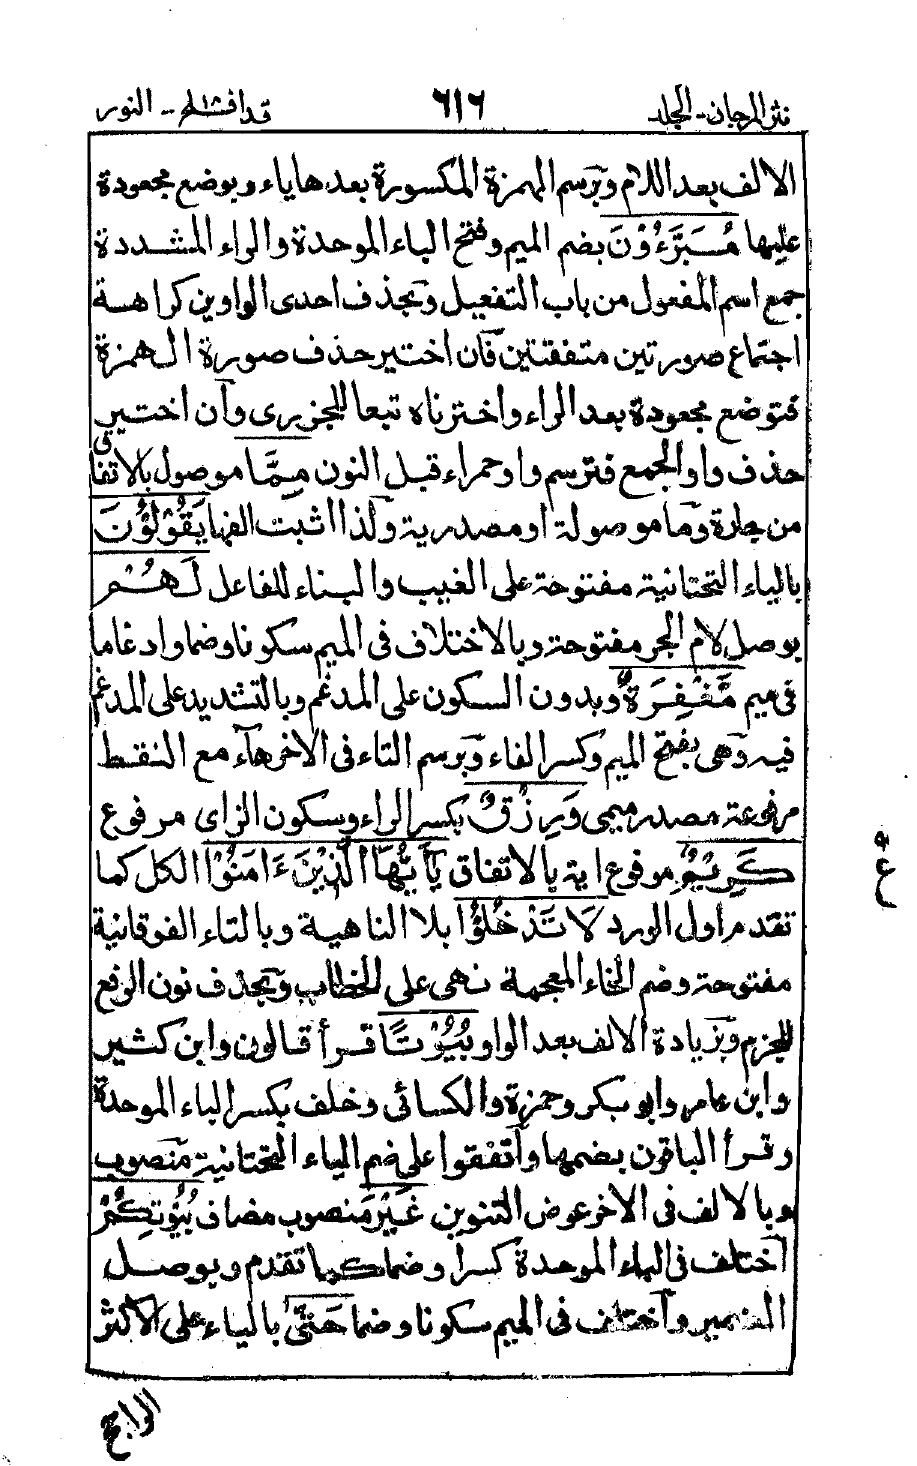 نثر المرجان - الجلد ٦١٦ قد افلح ١٨ - النور
الالف بعد اللام وبرسم الهمزة المكسورة بعدها ياء وبوضع مجعودة
عليها مُبَرَّءُوْنَ بضم الميم وفتح الباء الموحدة والراء المشددة
جمع اسم المفعول من باب التفعيل وبحذف احدى الواوين كراهـة
اجتماع صورتين متفقتين فان اختير حذف صورة الـهمزة
فتوضع مجعودة بعد الراء واخترناه تبعا للجزيرى وان اختـير
حذف واو الجمع فترسم واو حمراء قبل النون مِمَّا موصول بالاتفاق
من جارة وما موصولة او مصدرية ولذا اثبت الفها يَقُوْلُوْنَ
بالياء التحتانية مفتوحة على الغيب والبناء للفاعل لَـهُـمْ
بوصل لام الجر مفتوحة وبالاختلاف فى الميم سكونا وضما وادغاما
فى ميم مَّغْفِرَةٌ وبدون السكون على المدغم وبالتشديد على المدغم
فيه وهى بفتح الميم وكسر الفاء وبرسم التاء فى الاخر هاء مع النقط
مرفوعة مصدر ميمى وَرِزْقٌ بكسر الراء وسكون الزاى مرفوع
كَرِيْمٌ مرفوع اية بالاتفاق يٰٓاَيُّهَا الَّذِيْنَ ءَامَنُوْا الكل كما
تقدم اول الورد لَا تَدْخُلُوْا بلا الناهية وبالتاء الفوقانية
مفتوحة وضم الخاء المعجمة نهى على الخطاب وبحذف نون الرفع
للجزم وبزيادة الالف بعد الواو بُيُوْتًا قرأ قالون وابن كثير
وابن عامر وابو بكر وحمزة والكسائى وخلف بكسر الباء الموحدة
وقرأ الباقون بضمها واتفقوا على ضم الياء التحتانية منصوب
وبالالف فى الاخر عوض التنوين غَيْرَ منصوب مضاف بُيُوْتِكُمْ
اختلف فى الباء الموحدة كسرا وضما كما تقدم وبوصل
الضمير واختلف فى الميم سكونا وضما حَتّٰى بالياء على الاكثر